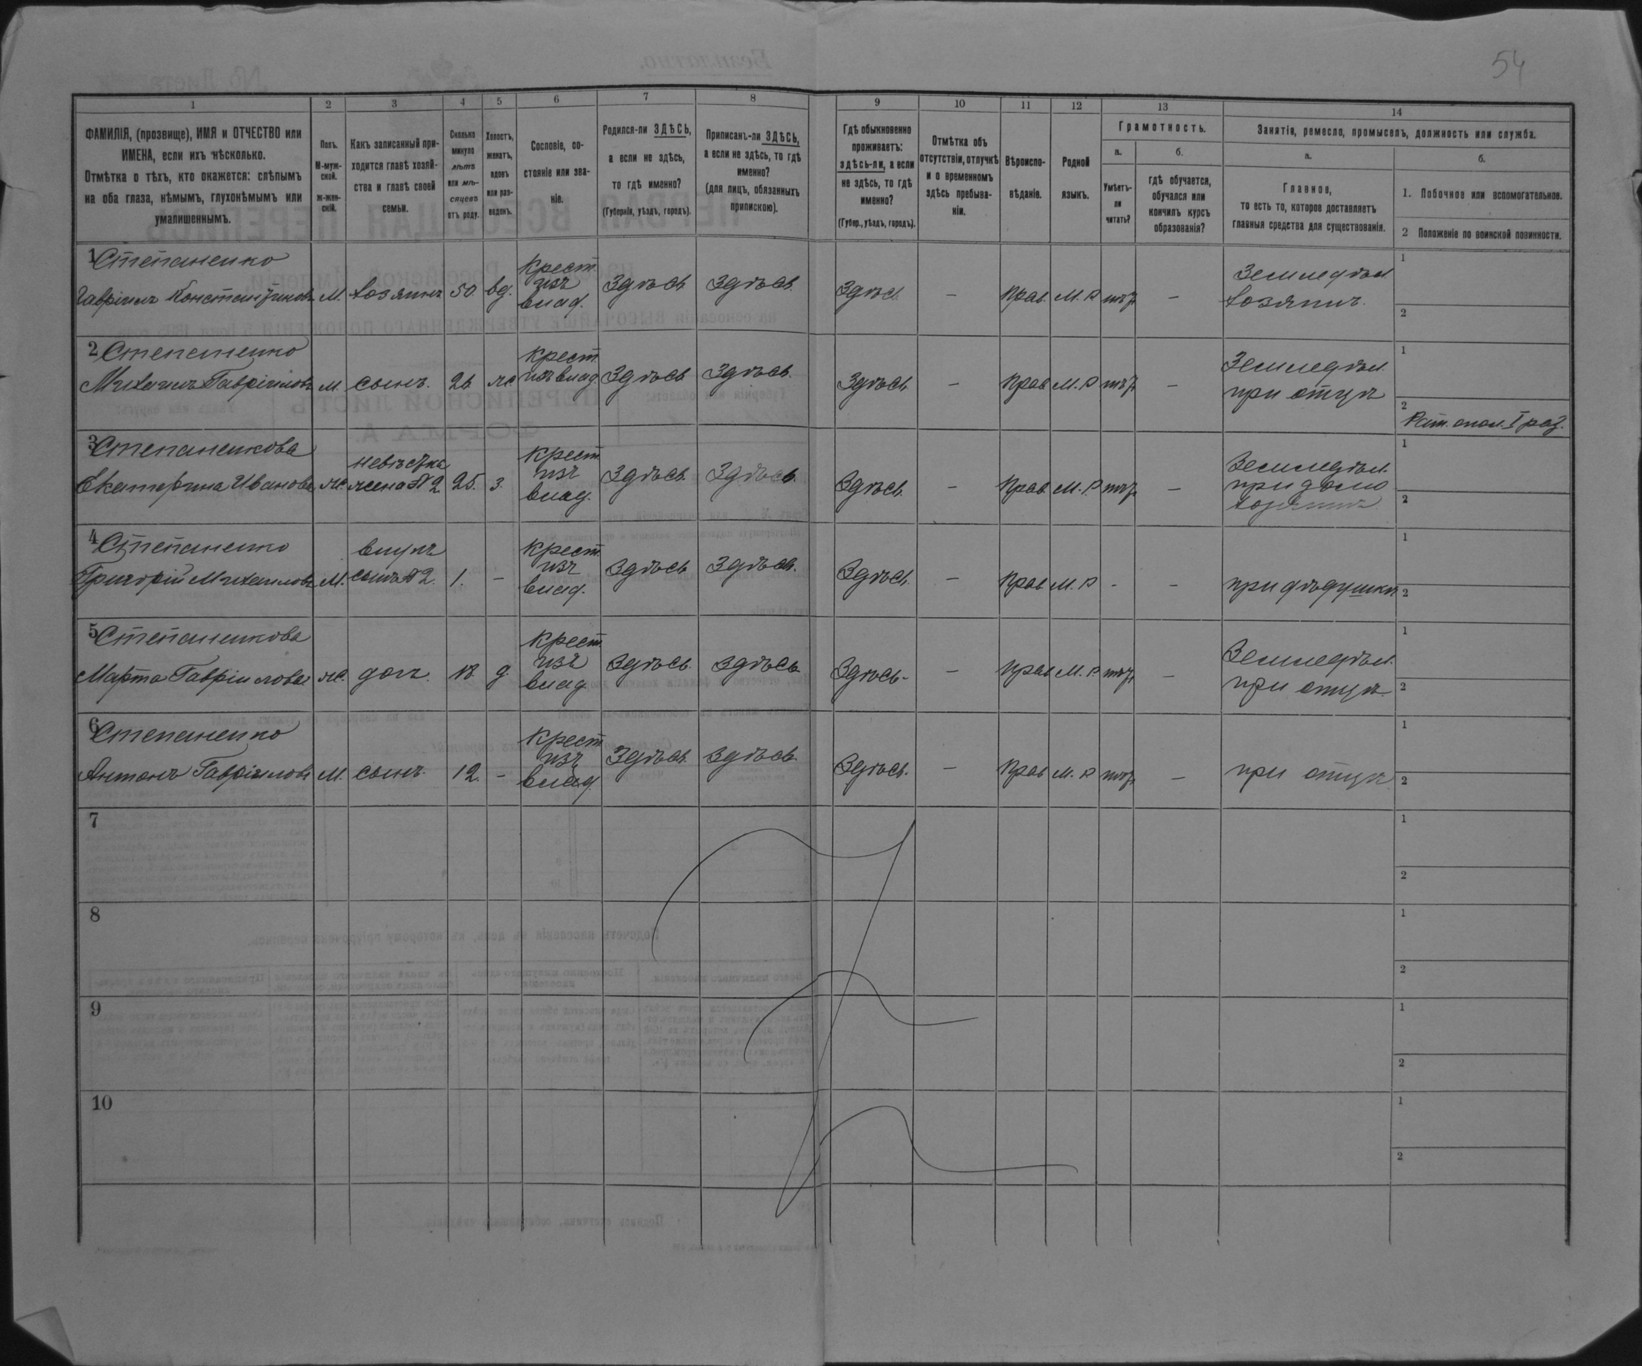 54
1 2 3 4 5 6 7 8 9 10 11 12 13 14
ФАМИЛІЯ, (прозвище), ИМЯ и ОТЧЕСТВО или
ИМЕНА, если ихъ нѣсколько.
Отмѣтка о тѣхъ, кто окажется: слѣпымъ
на оба глаза, нѣмымъ, глухонѣмымъ или
умалишеннымъ.
Полъ.
М-муж-
ской.
ж-жен-
скій.
Какъ записанный при-
ходится главѣ хозяй-
ства и главѣ своей
семьи.
Сколько
минуло
лѣтъ
или мѣ-
сяцевъ
отъ роду.
Холостъ,
женатъ,
вдовъ
или раз-
веденъ.
Сословіе, со-
стояніе или зва-
ніе.
Родился-ли ЗДѢСЬ,
а если не здѣсь,
то гдѣ именно?
(Губернія, уѣздъ, городъ).
Приписанъ-ли ЗДѢСЬ,
а если не здѣсь, то гдѣ
именно?
(для лицъ, обязанныхъ
припискою).
Гдѣ обыкновенно
проживаетъ:
здѣсь-ли, а если
не здѣсь, то гдѣ
именно?
(Губер., уѣздъ, городъ).
Отмѣтка объ
отсутствіи, отлучкѣ
и о временномъ
здѣсь пребыва-
ніи.
Вѣроиспо-
вѣданіе.
Родной
языкъ.
Грамотность.
а.
Умѣетъ-
ли
читать?
б.
гдѣ обучается,
обучался или
кончилъ курсъ
образованія?
Занятія, ремесло, промыселъ, должность или служба.
а.
Главное,
то есть то, которое доставляетъ
главныя средства для существованія.
б.
1. Побочное или вспомогательное.
2 Положеніе по воинской повинности.
1 Степаненко
Гавріилъ Константиновъ М. хозяинъ 50 вд. крест. изъ влад. Здѣсь Здѣсь Здѣсь — Прав. М. Р — Земледѣл. хозяинъ. 1 2
2 Степаненко
Михаилъ Гавріиловъ М. сынъ. 26 ж. крест. изъ влад. Здѣсь Здѣсь Здѣсь — Прав. М. Р — Земледѣл. при отцѣ 1 2 Рат. опол. I раз.
3 Степаненкова
Екатерина Иванова ж. невѣстка жена №2 25. з. крест. изъ влад. Здѣсь Здѣсь Здѣсь — Прав. М. Р — Земледѣл. при 1 2
4 Степаненко
Григорій Михаиловъ М. внукъ сынъ №2 1. — крест. изъ влад. Здѣсь Здѣсь. Здѣсь — Прав. М. Р - — при дѣдушкѣ 1 2
5 Степаненкова
Марта Гавріилова ж. доч. 18 д. крест. изъ влад. Здѣсь Здѣсь Здѣсь — Прав. М. Р — Земледѣл. при отцѣ 1 2
6 Степаненко
Антонъ Гавріиловъ М. сынъ. 12. — крест. изъ влад. Здѣсь Здѣсь Здѣсь. — Прав. М. Р — при отцѣ 1 2
7 1 2
8 1 2
9 1 2
10 1 2